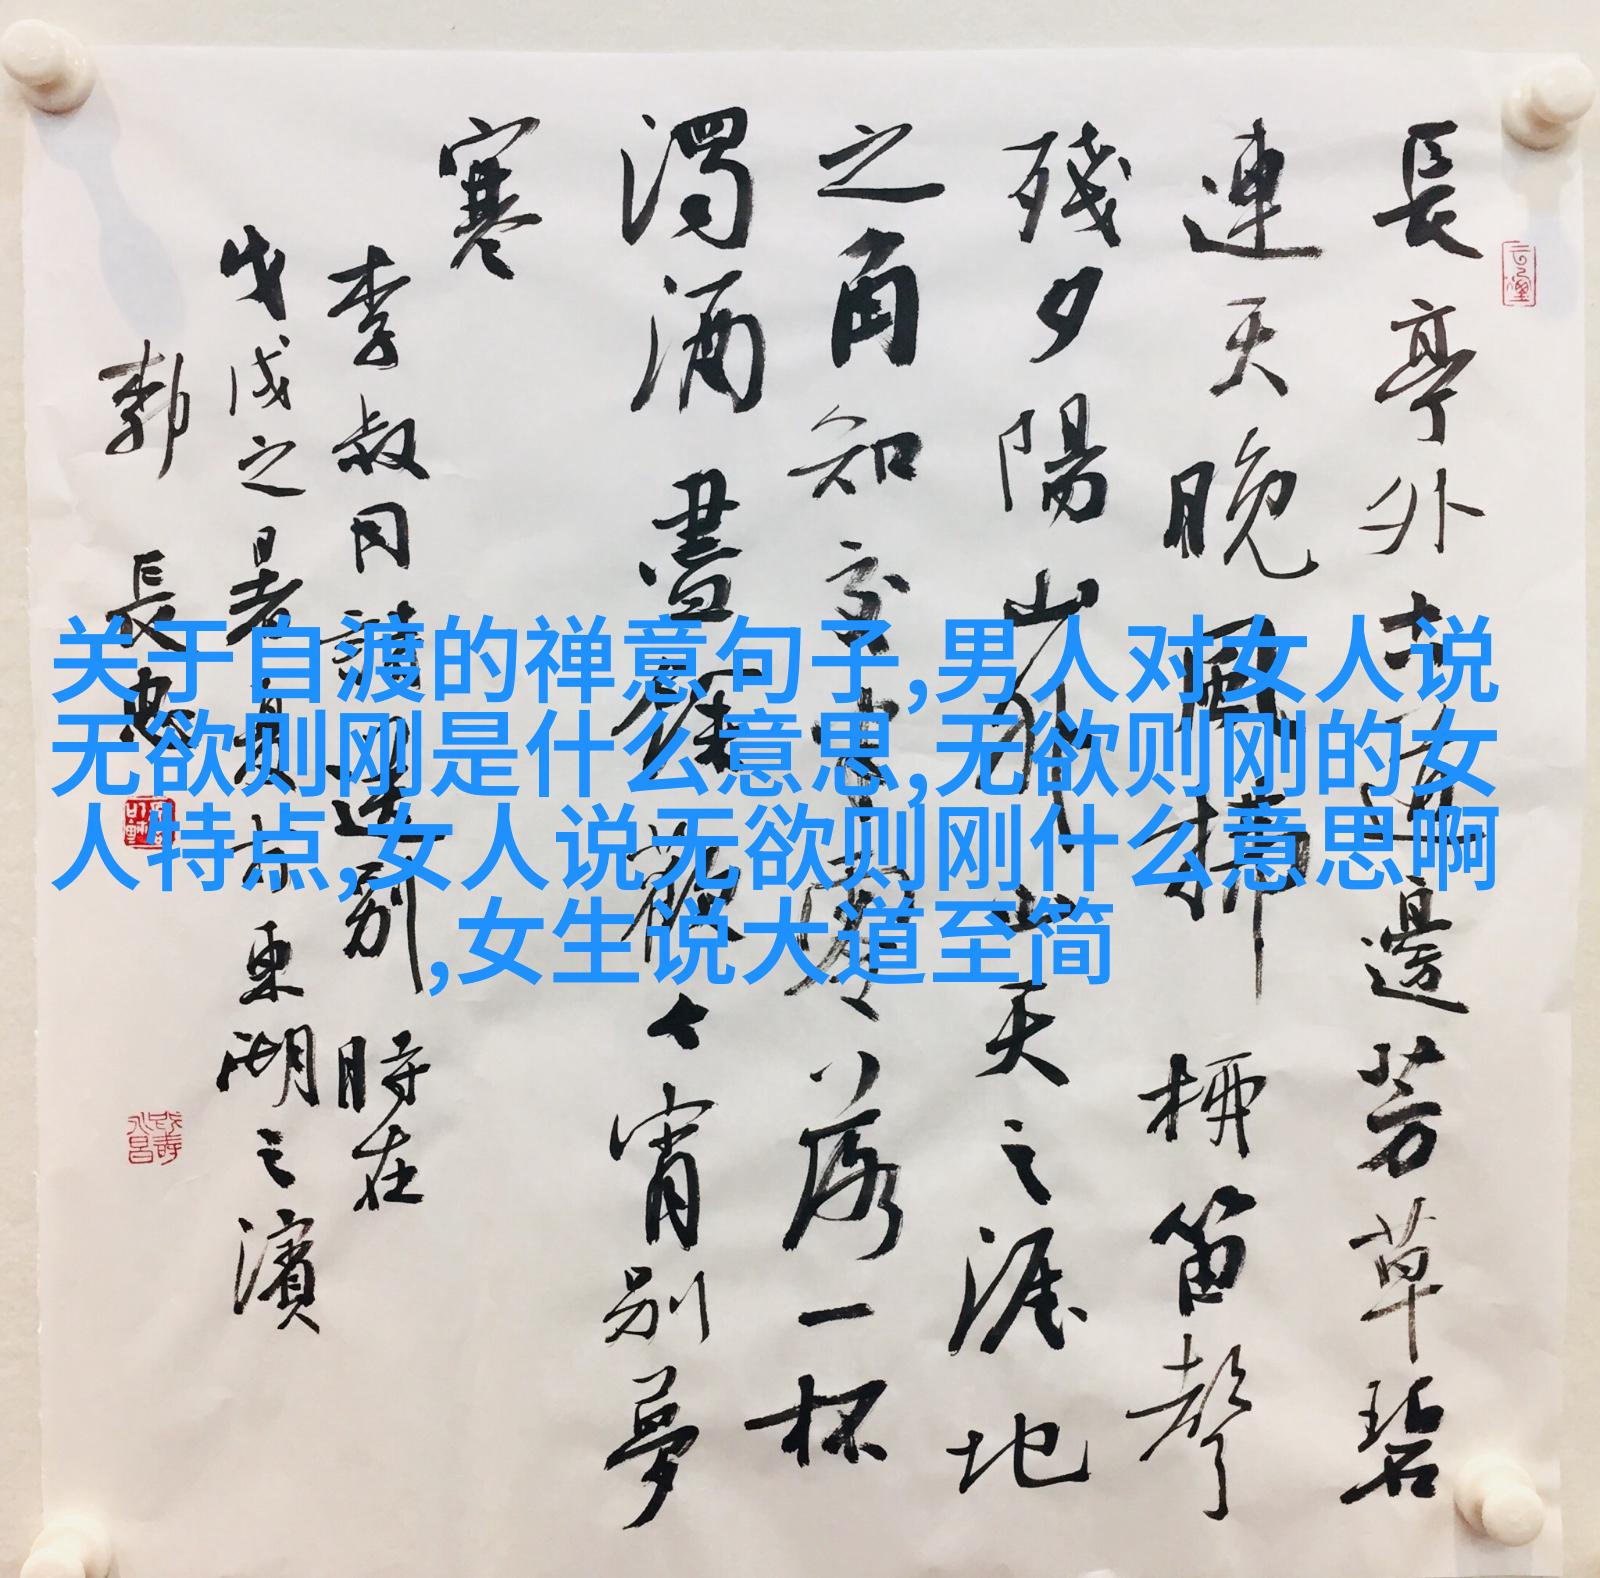 长亭外古道邊芳草碧
連天晚風拂柳笛聲
殘夕陽山外山天之涯地
之角知交半零落一杯
濁酒盡餘歡今宵别夢
寒
李叔同 送别 時在
戊戌之暑 於東湖之濱
郭長忠
关于自渡的禅意句子,男人对女人说
无欲则刚是什么意思,无欲则刚的女
人特点,女人说无欲则刚什么意思啊
,女生说大道至简